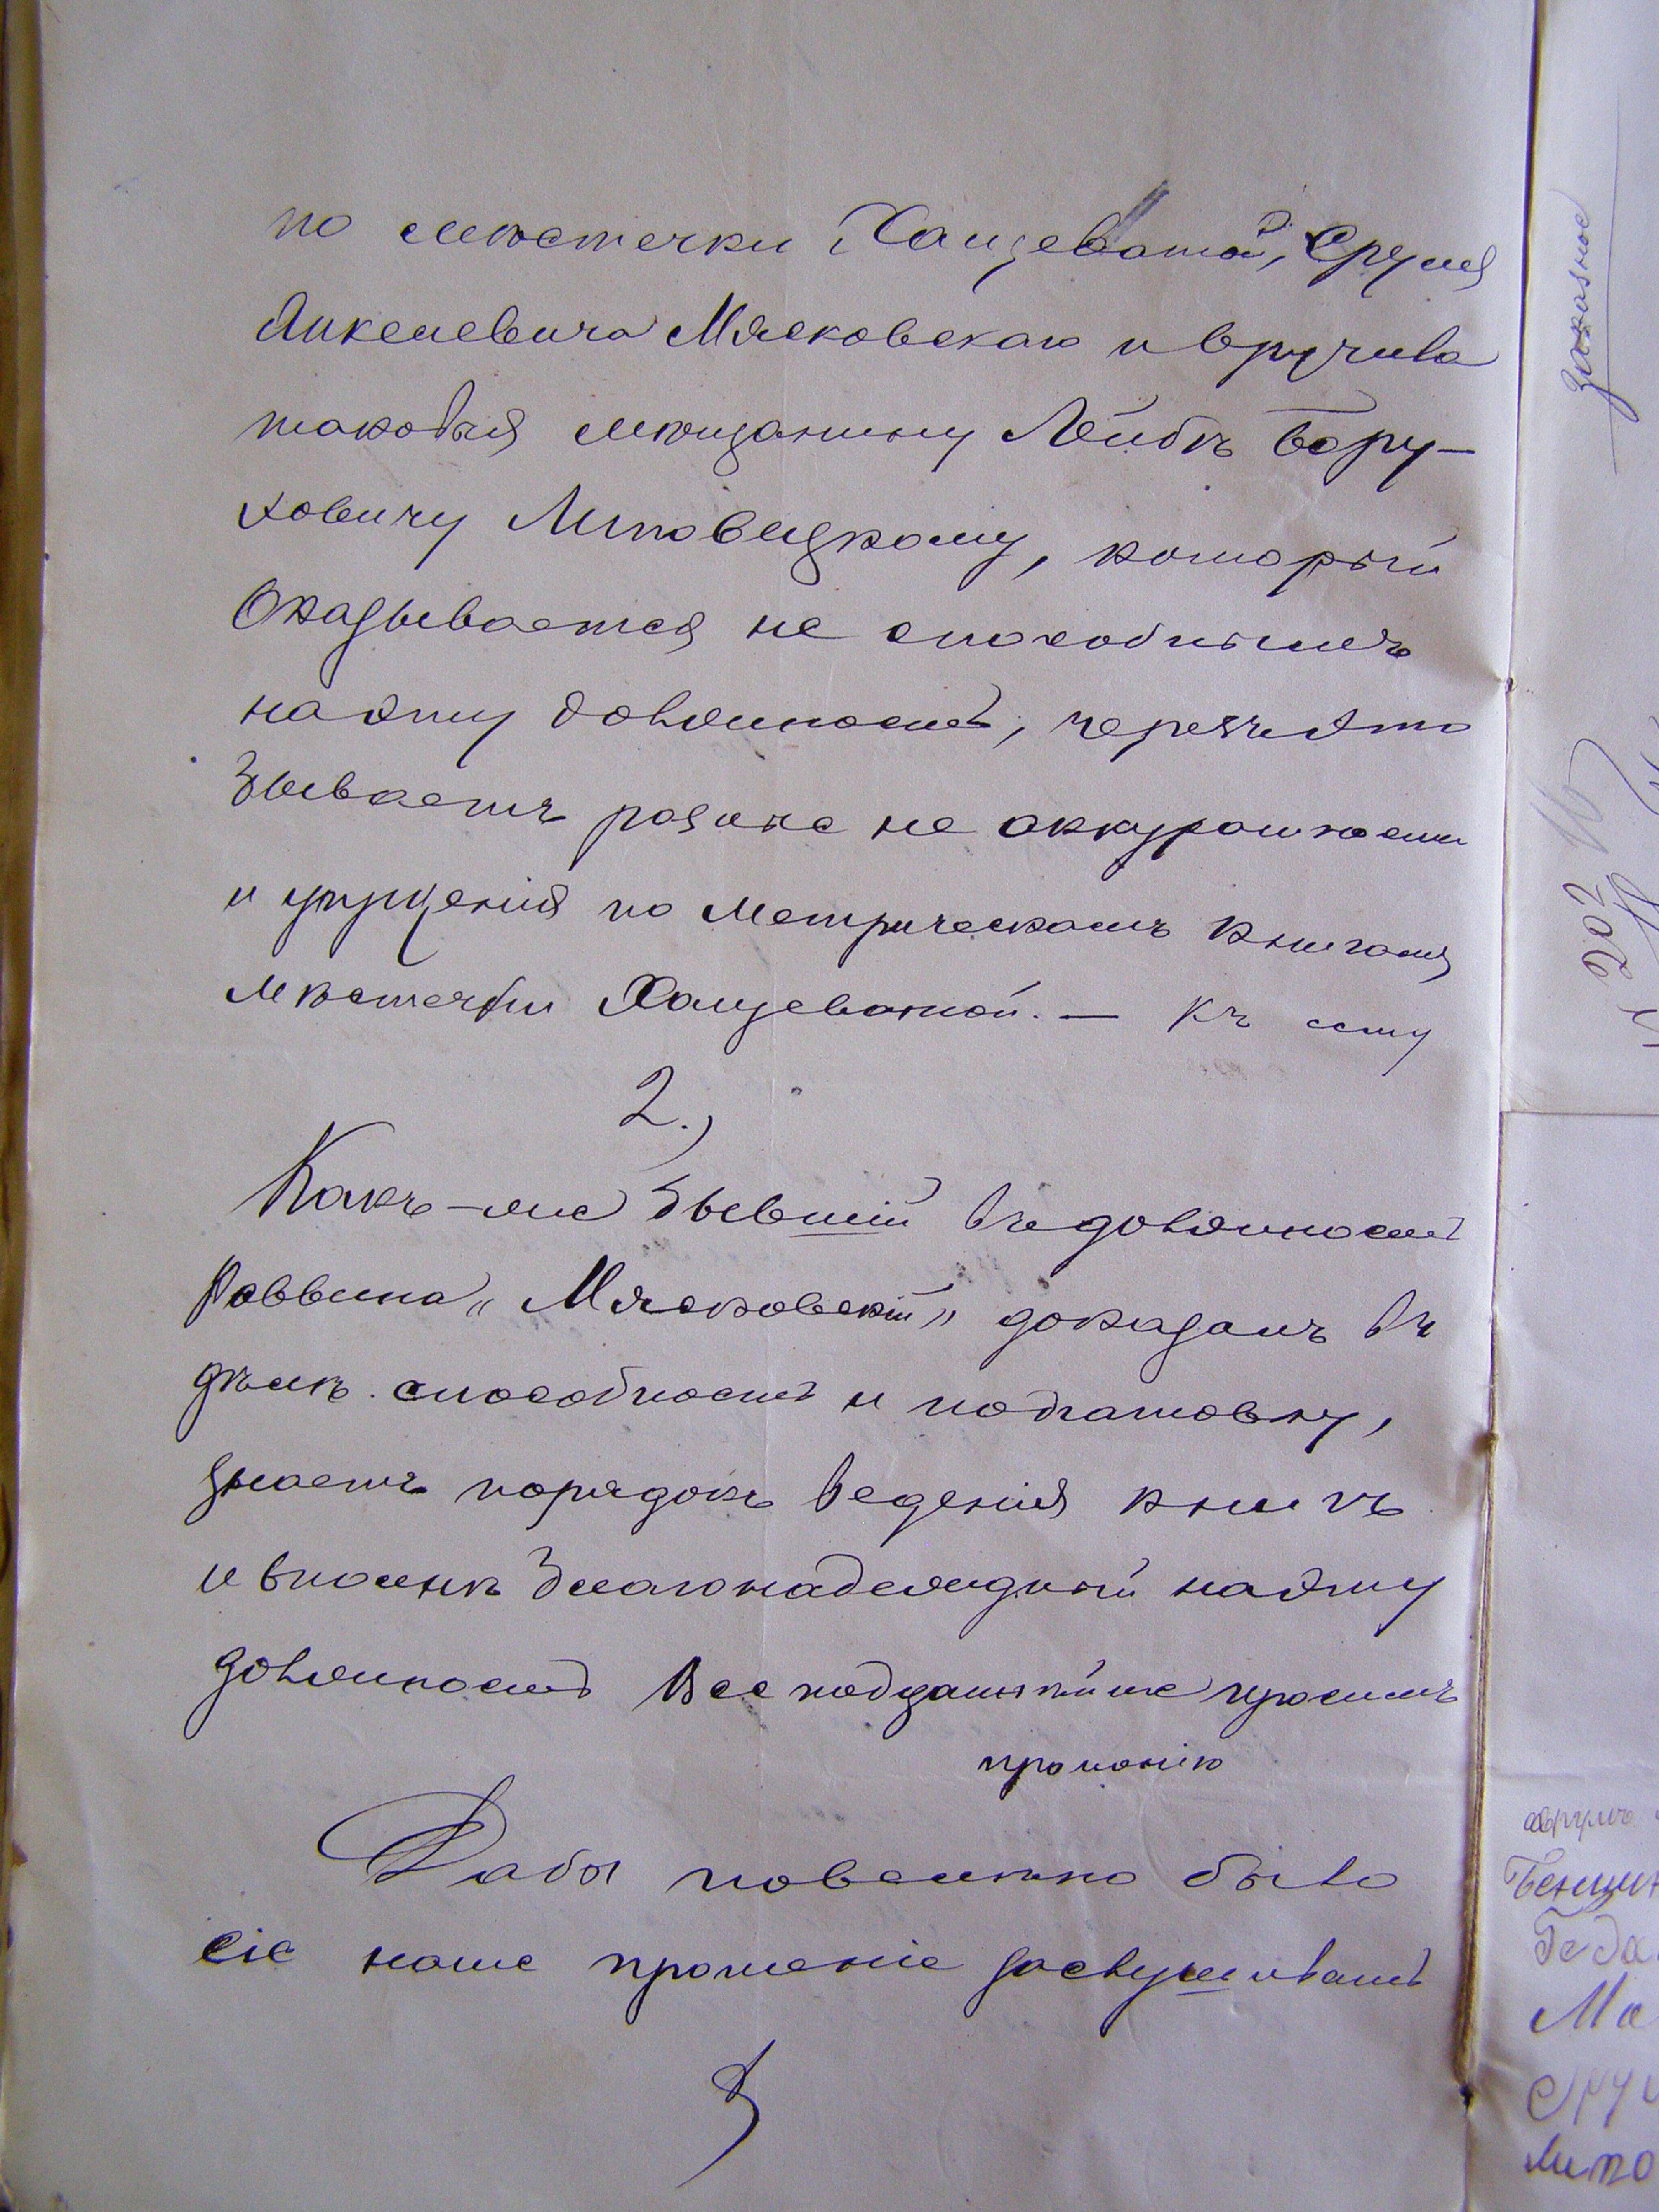 по мѣстечки Хащеватой, Сруля
Янкелевича Мясковскаго и вручива
таковыя мѣщанину Лейбѣ Бору-
ховичу Липовецкому, который
Оказывается не способнымъ
на эту должность, черезъ это
бываетъ разные не аккуратности
и упущенія по метрическамъ книгамъ
мѣстечки Хащеватой. — Къ сему
2.,
Какъ-же бывшій въ должность
Раввина „Мясковскій" доказалъ въ
дѣлѣ способность и подготовку,
знаетъ порядокъ веденія книгъ
и вполнѣ благонадежный на эту
должность Всеподданнѣйше просимъ
прошенію
Дабы повелѣно было
сіе наше прошеніе заслушивать
законное
202
Аврумъ
Бенцион
Года
Ма
Сру
Липо